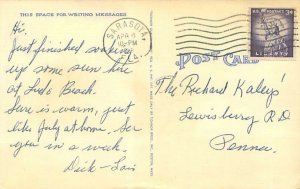 THIS SPACE FOR WRITING MESSAGES
Hi.
Just finished soaking
up some sun here
at Lido Beach.
Sure is warm, just
like July at home. See
you in a week.
Dick - Lois
SARASOTA
APR
PM
FLA.
POST CARD
U.S. POSTAGE 3¢
LIBERTY
The Richard Kaleys'
Lewisberry R.D
Penna.